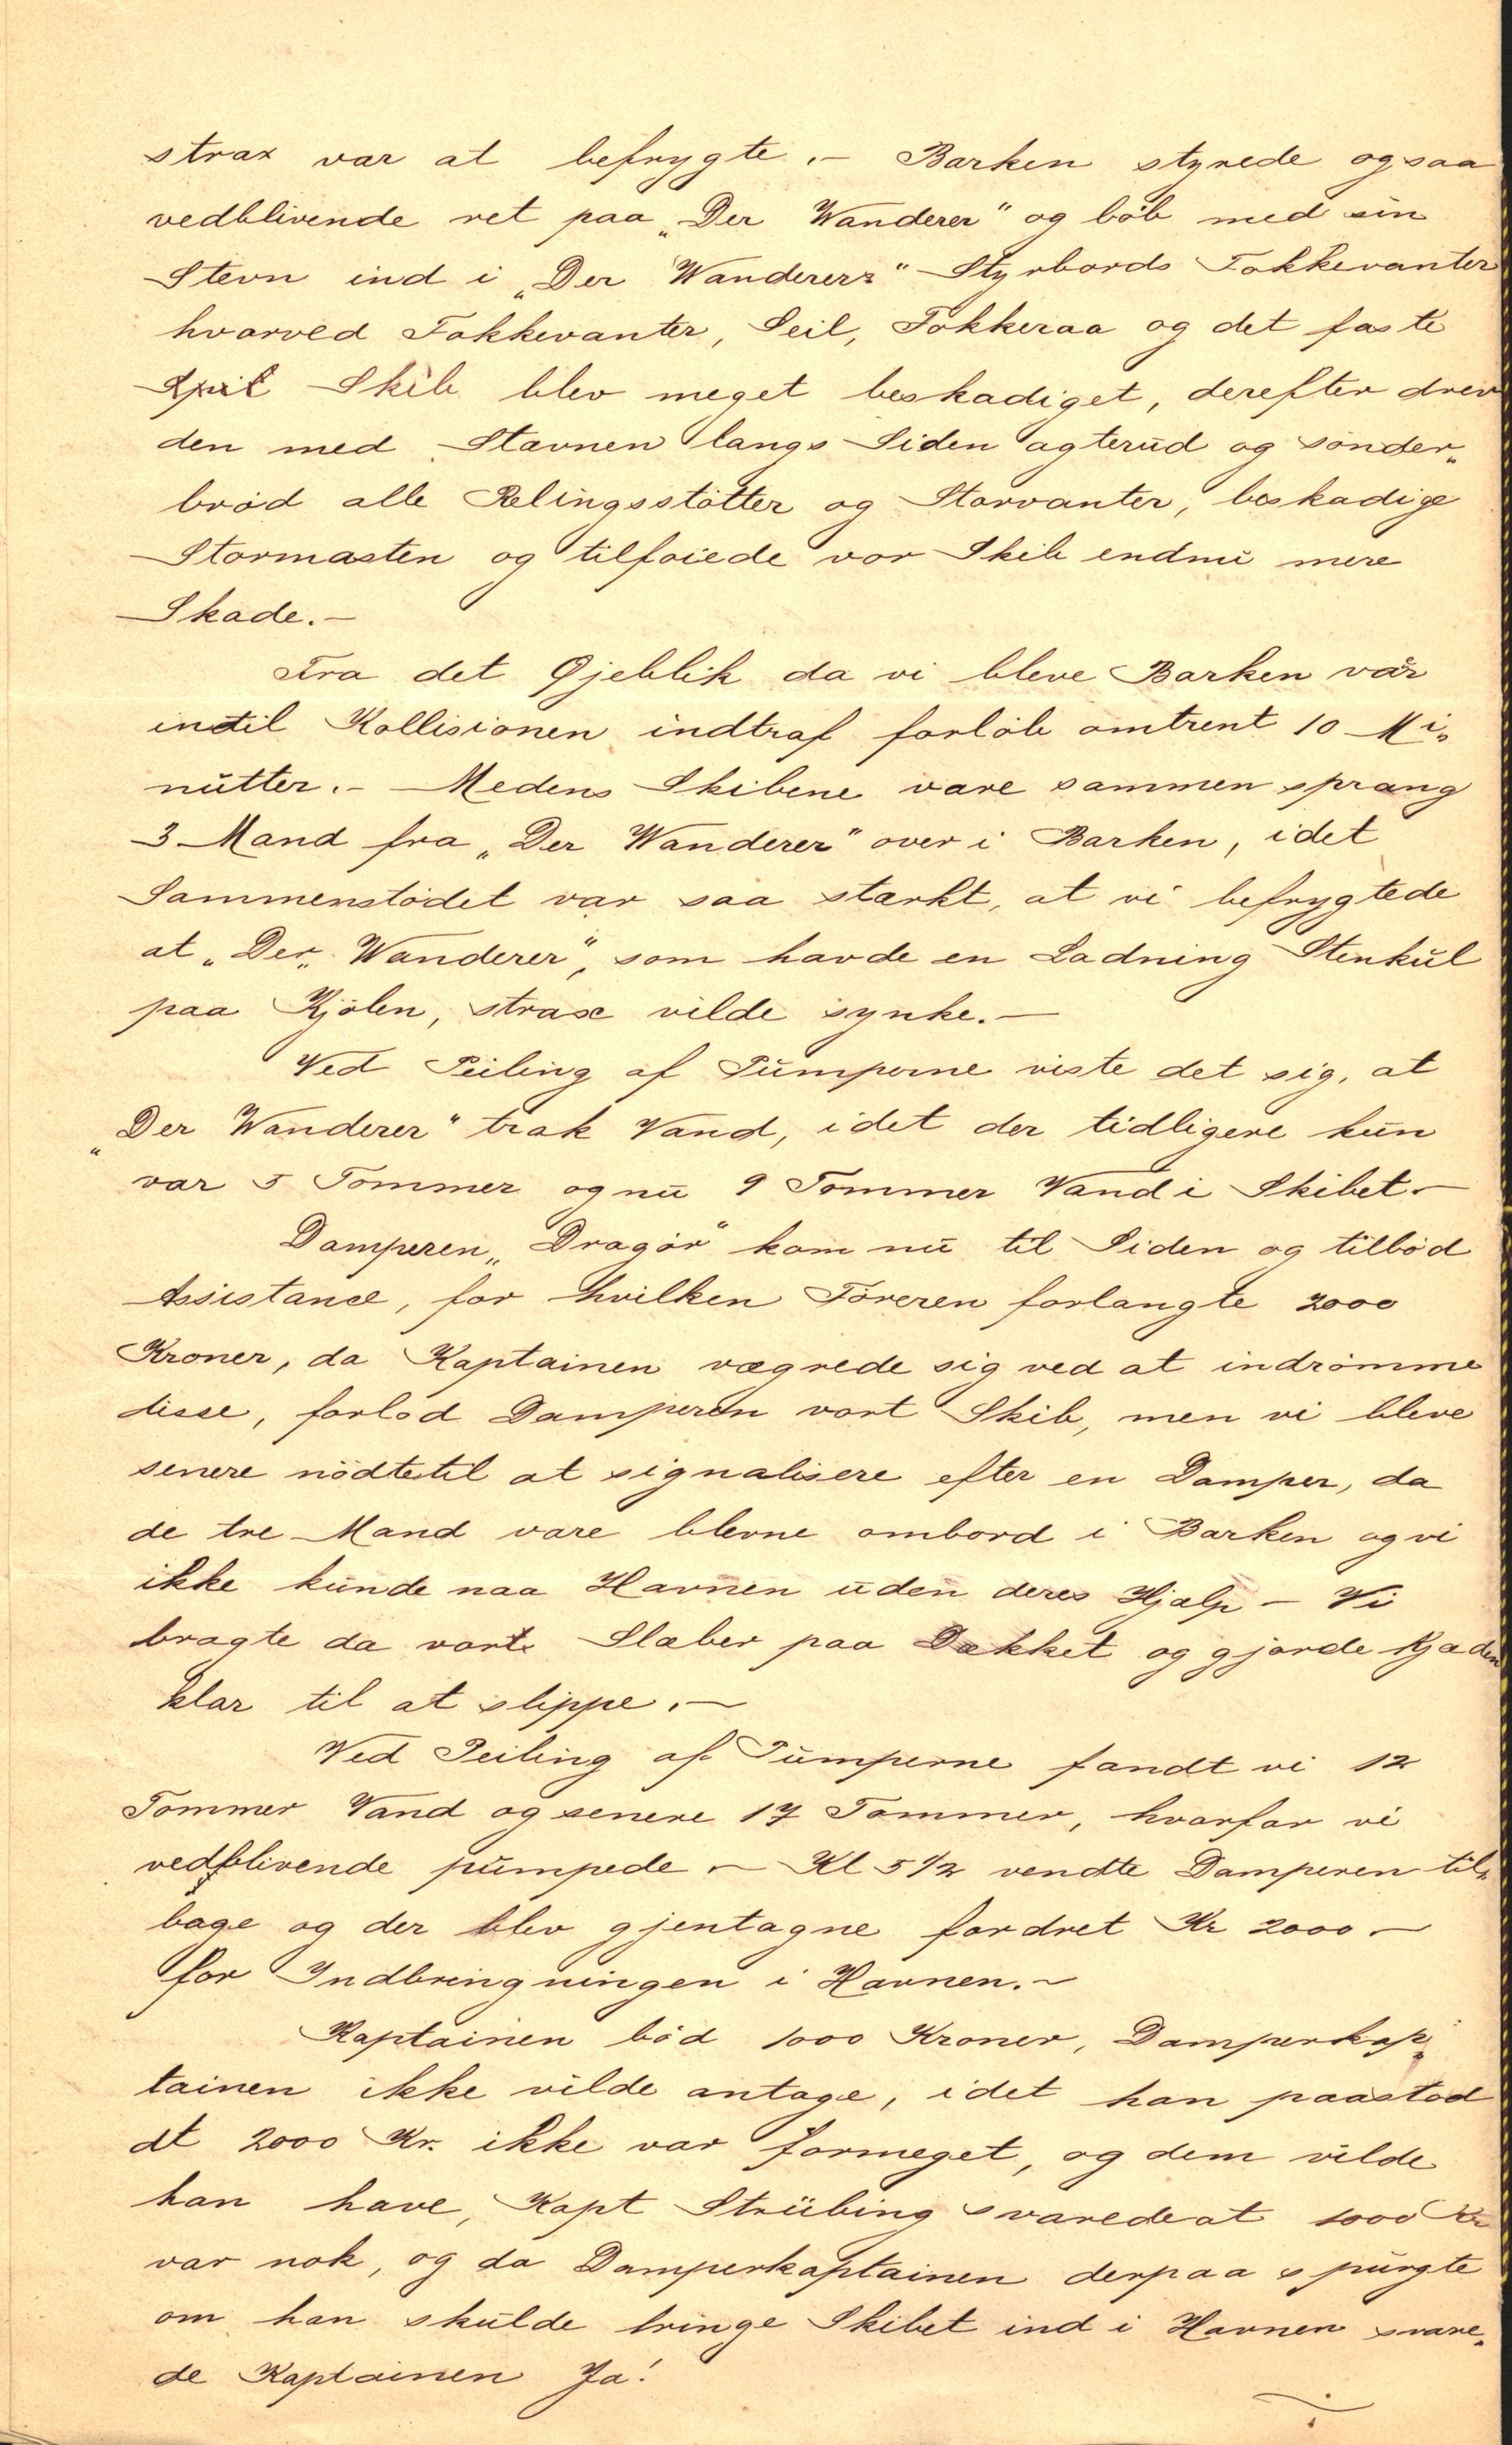 strax var at befrygte .- Barken styrede ogsaa
vedblivende ret paa „Der Wanderer" og løb med sin
Stevn ind i „Der Wanderers" Styrbords Fokkevanter
hvorved Fokkevanter, Seil, Fokkeraa og det faste
Spil Skib blev meget beskadiget, derefter drev
den med Stavnen langs Siden agterud og sønder„
brød alle Relingsstøtter og Storvanter, beskadige
Stormasten og tilføiede vor Skib endnu mere
Skade.-
Fra det Øjeblik da vi bleve Barken var
indtil Kollisionen indtraf forløb omtrent 10 Mi„
nutter.- Medens Skibene vare sammen sprang
3 Mand fra „Der Wanderer" over i Barken, idet
Sammenstødet var saa stærkt, at vi befrygtede
at „Der „Wanderer", som havde en Ladning Stenkul
paa Kjølen, strax vilde synke.-
Ved Peiling af Pumperne viste det sig, at
„Der Wanderer" trak Vand, idet der tidligere kun
var 5 Tommer og nu 9 Tommer Vand i Skibet.-
Damperen „Dragør" kom nu til Siden og tilbød
Assistance, for hvilken Føreren forlangte 2000
Kroner, da Kaptainen vægrede sig ved at indrømme
disse, forlod Damperen vort Skib, men vi bleve
senere nødtetil at signalisere efter en Damper, da
de tre Mand vare blevne ombord i Barken og vi
ikke kunde naa Havnen uden deres Hjælp - Vi
bragte da vort Slæber paa Dækket og gjorde Kjæden
klar til at slippe .-
Ved Peiling af Pumperne fandt vi 12
Tommer Vand og senere 17 Tommer, hvorfor vi
vedblivende pumpede .- Kl 5½ vendte Damperen til„
bage og der blev gjentagne fordret Kr 2000.-
for Indbringningen i Havnen.-
Kaptainen bød 1000 Kroner, Damperkap„
tainen ikke vilde antage, idet han paastod
at 2000 Kr. ikke var formeget, og dem vilde
han have, Kapt Strübing svarede at 1000 Kr
var nok, og da Damperkaptainen derpaa spurgte
om han skulde bringe Skibet ind i Havnen svare„
de Kaptainen Ja!